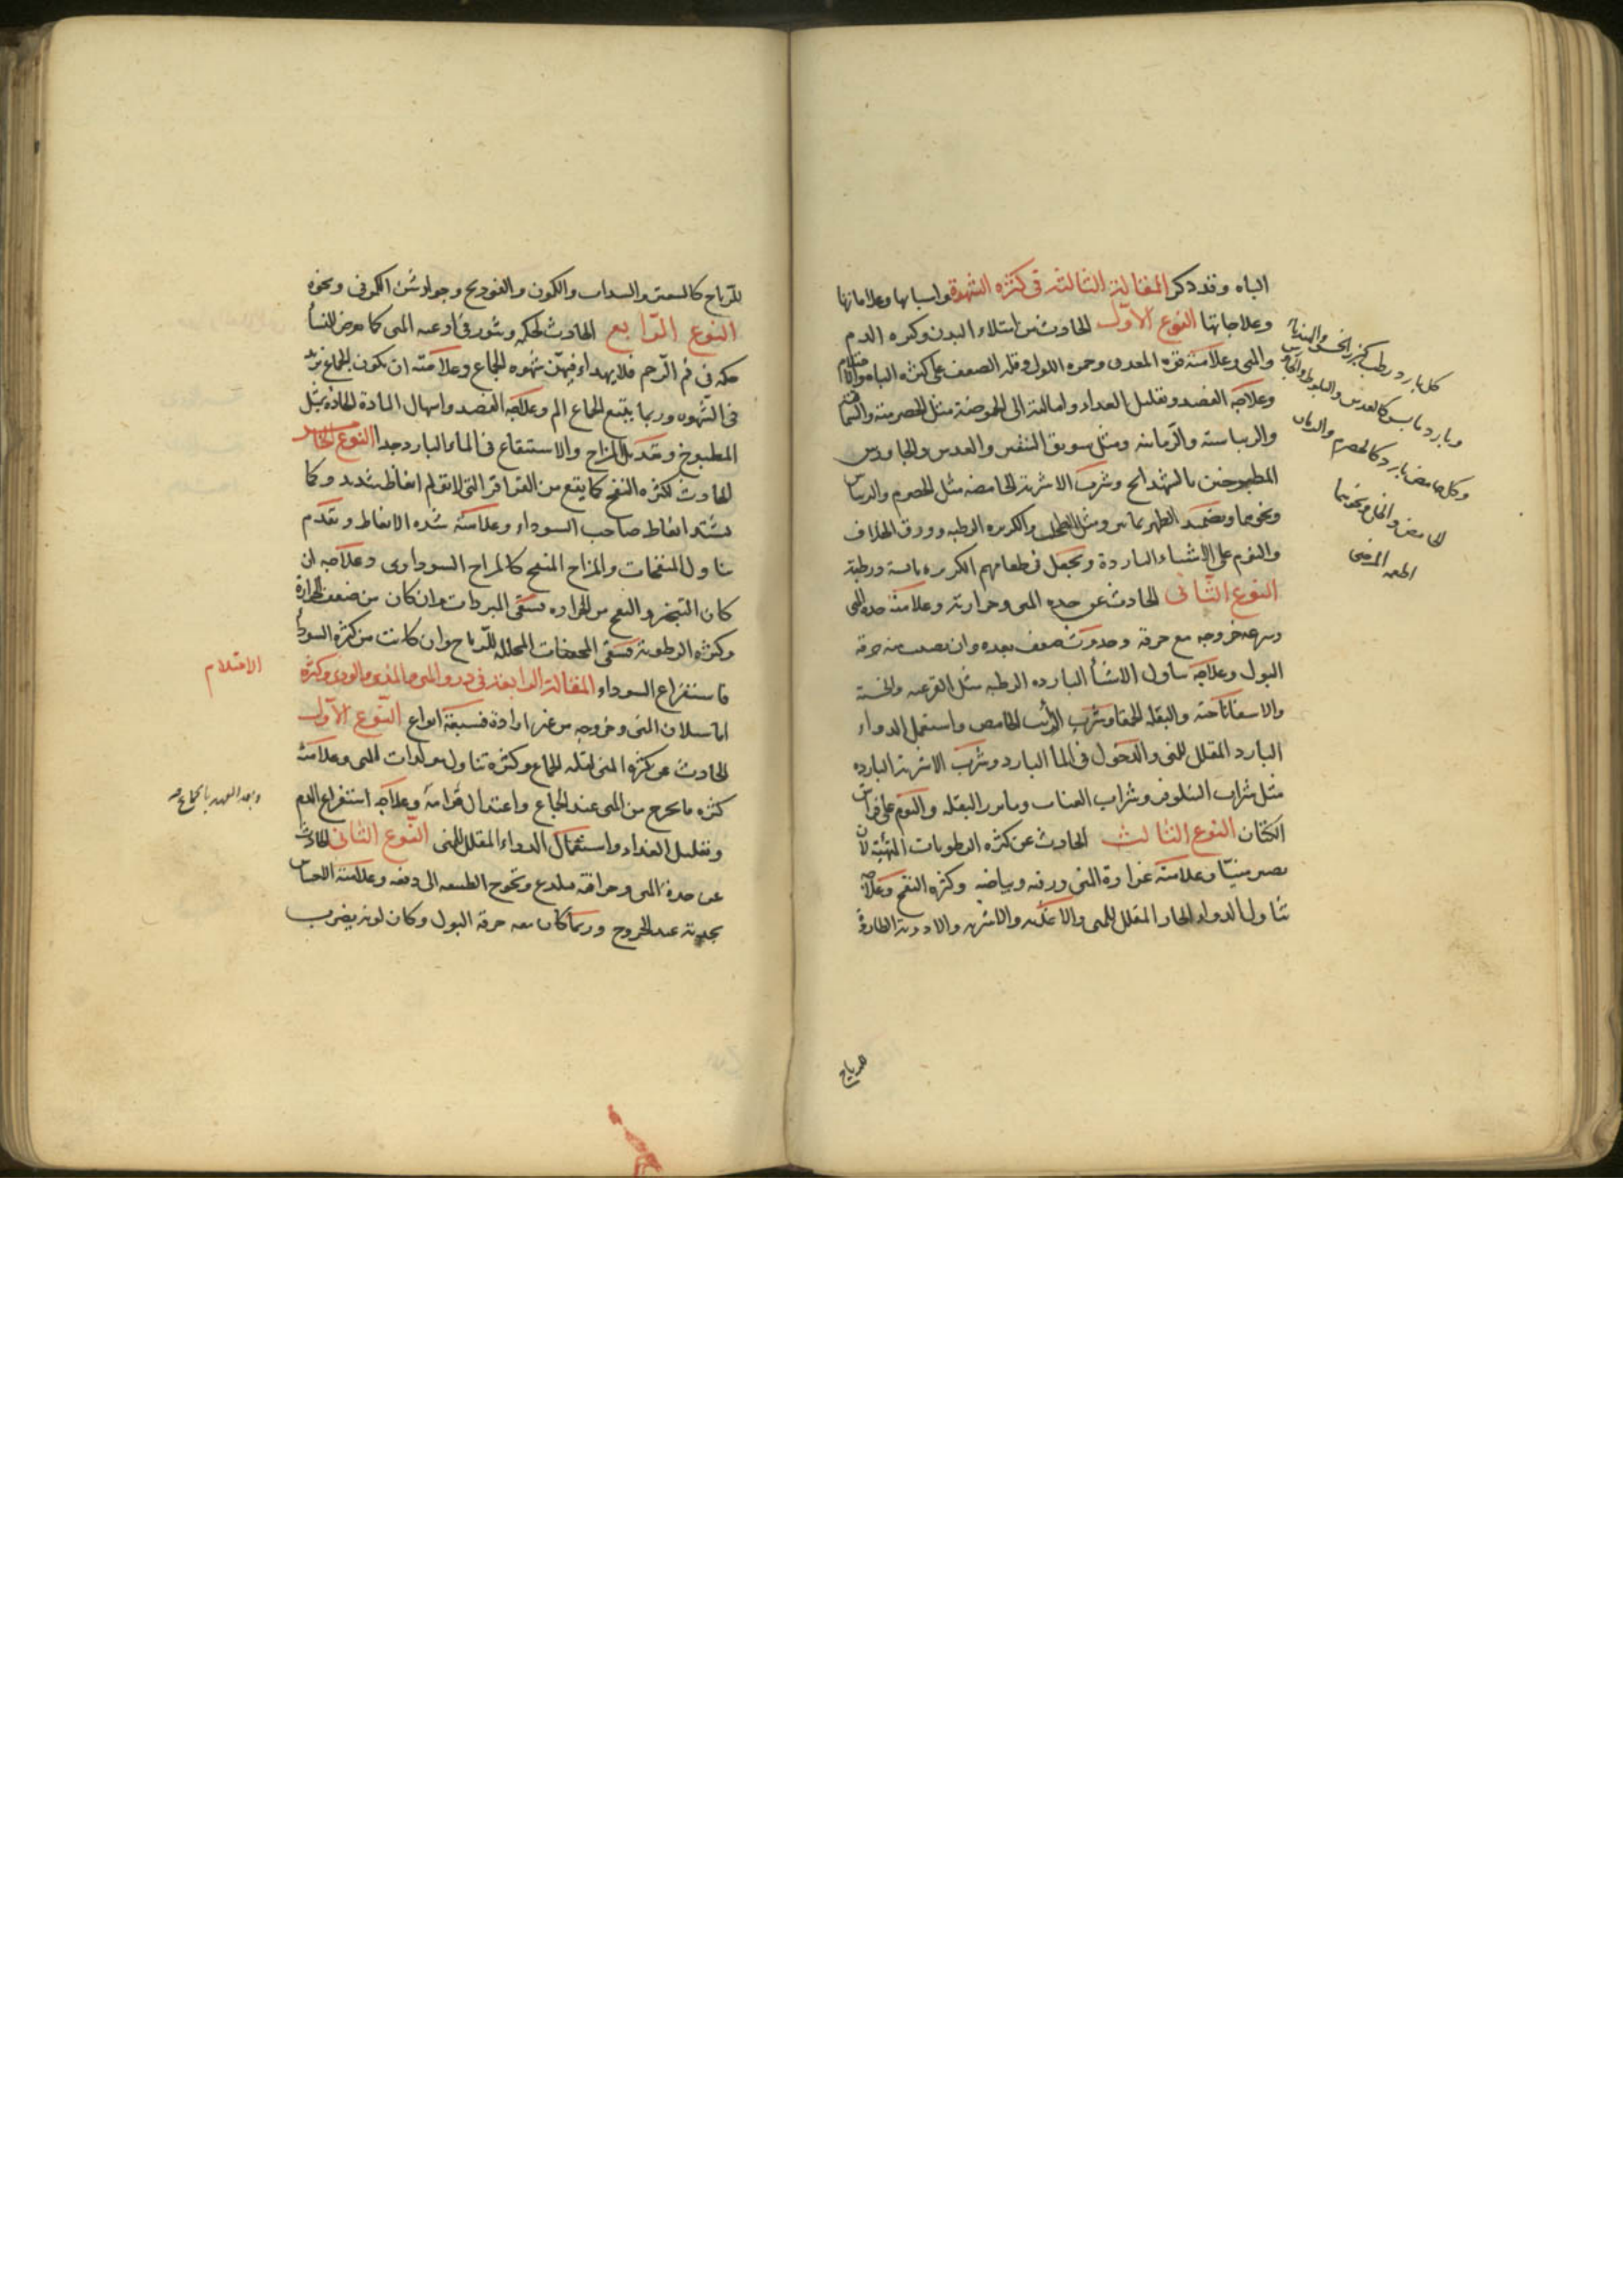 الباه وقد ذكر المقالة الثالثة فى كثرة الشهوة واسبابها وعلاماتها
وعلاجاتها النوع الاول الحادث من امتلاء البدن وكثره الدم
والمنى وعلامته قوه البدن وحمره اللون وقله الضعف على كثره الباه
وعلاجه الفصد وتقليل الغداء وامالته الى الحموضة مثل الحصرمية والسماقية
والريباسية والرمانيه ومثل سويق الشعير والعدس والجاورس
المطبوخين بالشهدانج وشرب الاشربة الحامضه مثل الحصرم والريباس
ونحوهما ويضمد الظهر بمثل الطحلب والكزبره الرطبه وورق الخلاف
والنوم على الاشياء الباردة ويجعل فى طعامهم الكزبره يابسة ورطبة
النوع الثانى الحادث عن حده المنى وحرارته وعلامته حده المنى
وسرعه خروجه مع حرقة وحدوث ضعف بعده وان يصيب منه حرقة
البول وعلاجه تناول الاشيا البارده الرطبه مثل القرعيه والخسية
والاسفاناخية والبقله الحمقا وشرب الرائب الحامض واستعمل الدواء
البارد المقلل للمنى والدخول فى الما البارد وشرب الاشربة البارده
مثل شراب النيلوفر وشراب العناب وماء بزر البقله والنوم على فراش
الكتان النوع الثالث الحادث عن كثره الرطوبات المهيئة لان
يصير منيا وعلامته غزارة المنى ورقته وبياضه وكثره النفخ وعلاجه
تناول الدواء الحار المقلل للمنى والاغذيه والاشربه والادوية الطاردة
للرياح
كل بارد رطب كبزر الخس والهندبا
وبارد يابس كالعدس والبلوط والجاورس
وكل حامض بارد كالحصرم والرمان
الحامض والخل ونحوهما
للرياح كالسعتر والسداب والكمون والفودنج وجوارشن الكمونى ونحوه
النوع الرابع الحادث لحكه وبثور فى اوعيه المنى كما يعرض للنساء
حكه فى فم الرحم فلا يهداء فيهن شهوه الجماع وعلامته ان يكون الجماع يزيد
فى الشهوه وربما يتبع الجماع الم وعلاجه الفصد واسهال المادة الحادة بمثل
المطبوخ وتعديل المزاج والاستنقاع فى الماء البارد جدا النوع الخامس
الحادث لكثره النفخ كما يقع من القراقر التى لاتقوم انعاظ شديد وكما
يشتد انعاظ صاحب السوداء وعلامته شده الانعاظ وتقدم
تناول المنفخات والمزاج المنفخ كالمزاج السوداوى وعلاجه ان
كان التبخر والنفخ من الحراره فسقى المبردات وان كان من ضعف الحرارة
وكثره الرطوبة فسقى المجففات المحلله للرياح وان كانت من كثره السوداء
فاستفراغ السوداء المقالة الرابعة فى درور المنى والمذى والودى وكثرة
الاحتلام
اما سيلان المنى وخروجه من غير ارادة فسبعة انواع النوع الاول
الحادث عن كثره المنى لقله الجماع وكثرة تناول مولدات المنى وعلامته
وبعد العهد بالجماع صح
كثره ما يخرج من المنى عند الجماع واعتدال قوامه وعلاجه استفراغ الدم
وتقليل الغداء واستعمال الدواء المقلل للمنى النوع الثانى الحادث
عن حدة المنى وحرافته فيلدع ويحوج الطبيعه الى دفعه وعلامته الاحساس
بحدته عند الخروج وربما كان معه حرقة البول وكان لونه يضرب